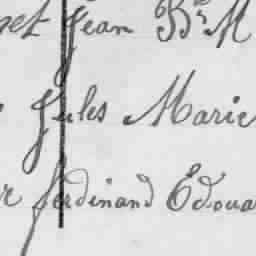 Jean Bte M
Jules Marie
Ferdinand Edoua